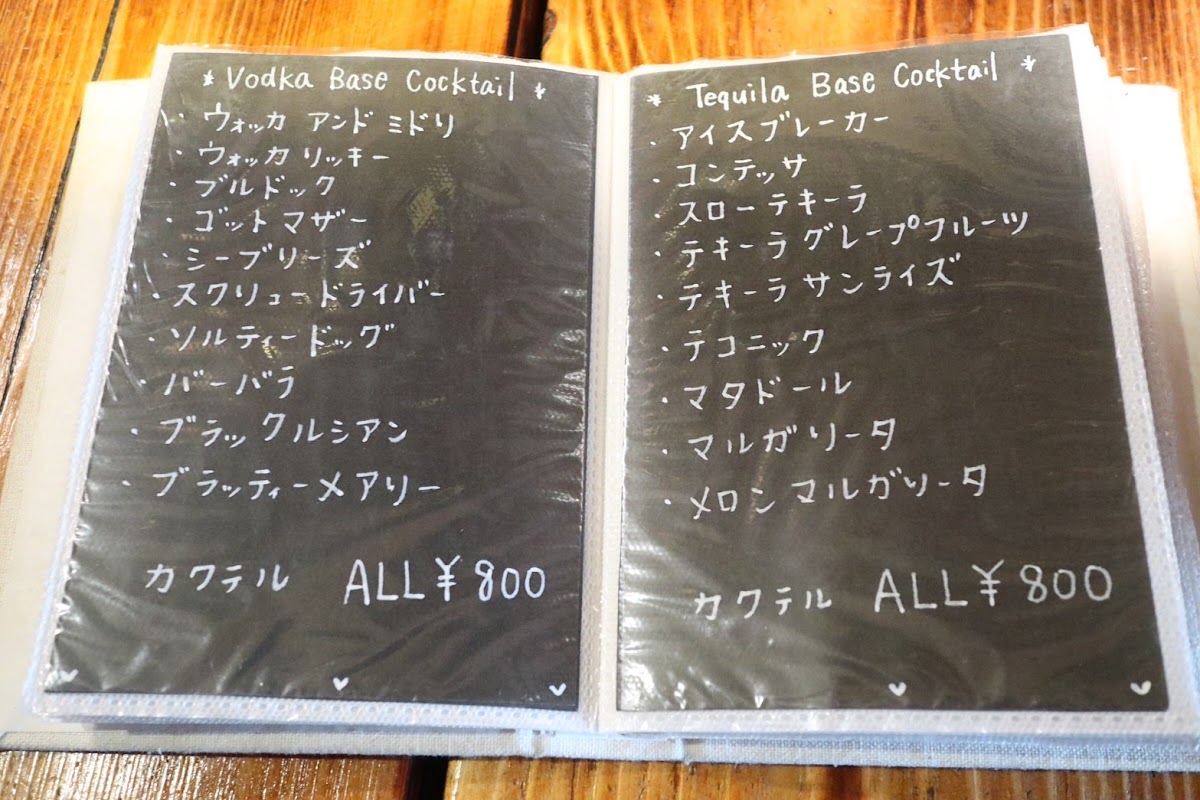 * Vodka Base Cocktail *
・ウォッカ アンド ミドリ
・ウォッカ リッキー
・ブルドック
・ゴットマザー
・シーブリーズ
・スクリュードライバー
・ソルティードッグ
・バーバラ
・ブラックルシアン
・ブラッティーメアリー
カクテル ALL¥800
* Tequila Base Cocktail *
・アイスブレーカー
・コンテッサ
・スローテキーラ
・テキーラグレープフルーツ
・テキーラサンライズ
・テコニック
・マタドール
・マルガリータ
・メロンマルガリータ
カクテル ALL¥800